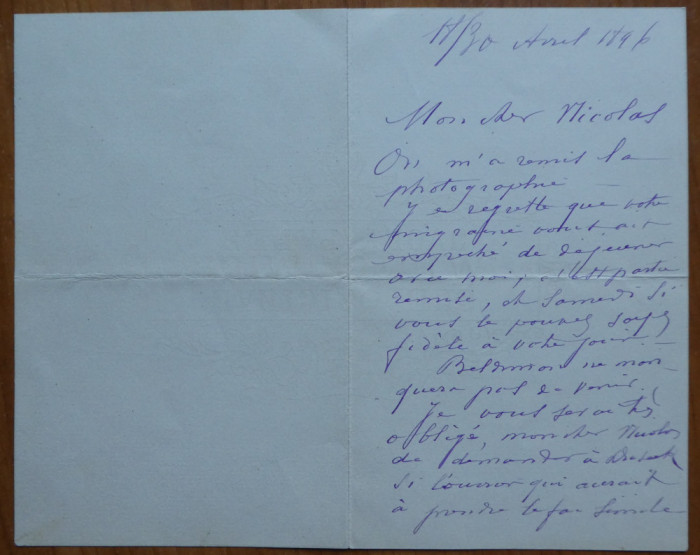 18/30 Avril 1896
Mon cher Nicolas
On m'a remis la
photographie —
Je regrette que votre
migraine vous ait
empêché de déjeuner
avec moi; c'est partie
remise, et Samedi si
vous le pouvez soyez
fidèle à votre jour. —
ne man-
quera pas de venir.
Je vous serai très
obligé, mon cher Nicolas
de demander à
si l'ouvroir qui aurait
à prendre le fac simile